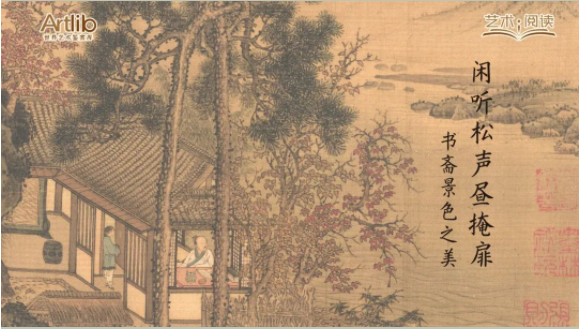 Artlib
世界艺术鉴赏库
艺术·阅读
闲听松声昼掩扉
书斋景色之美